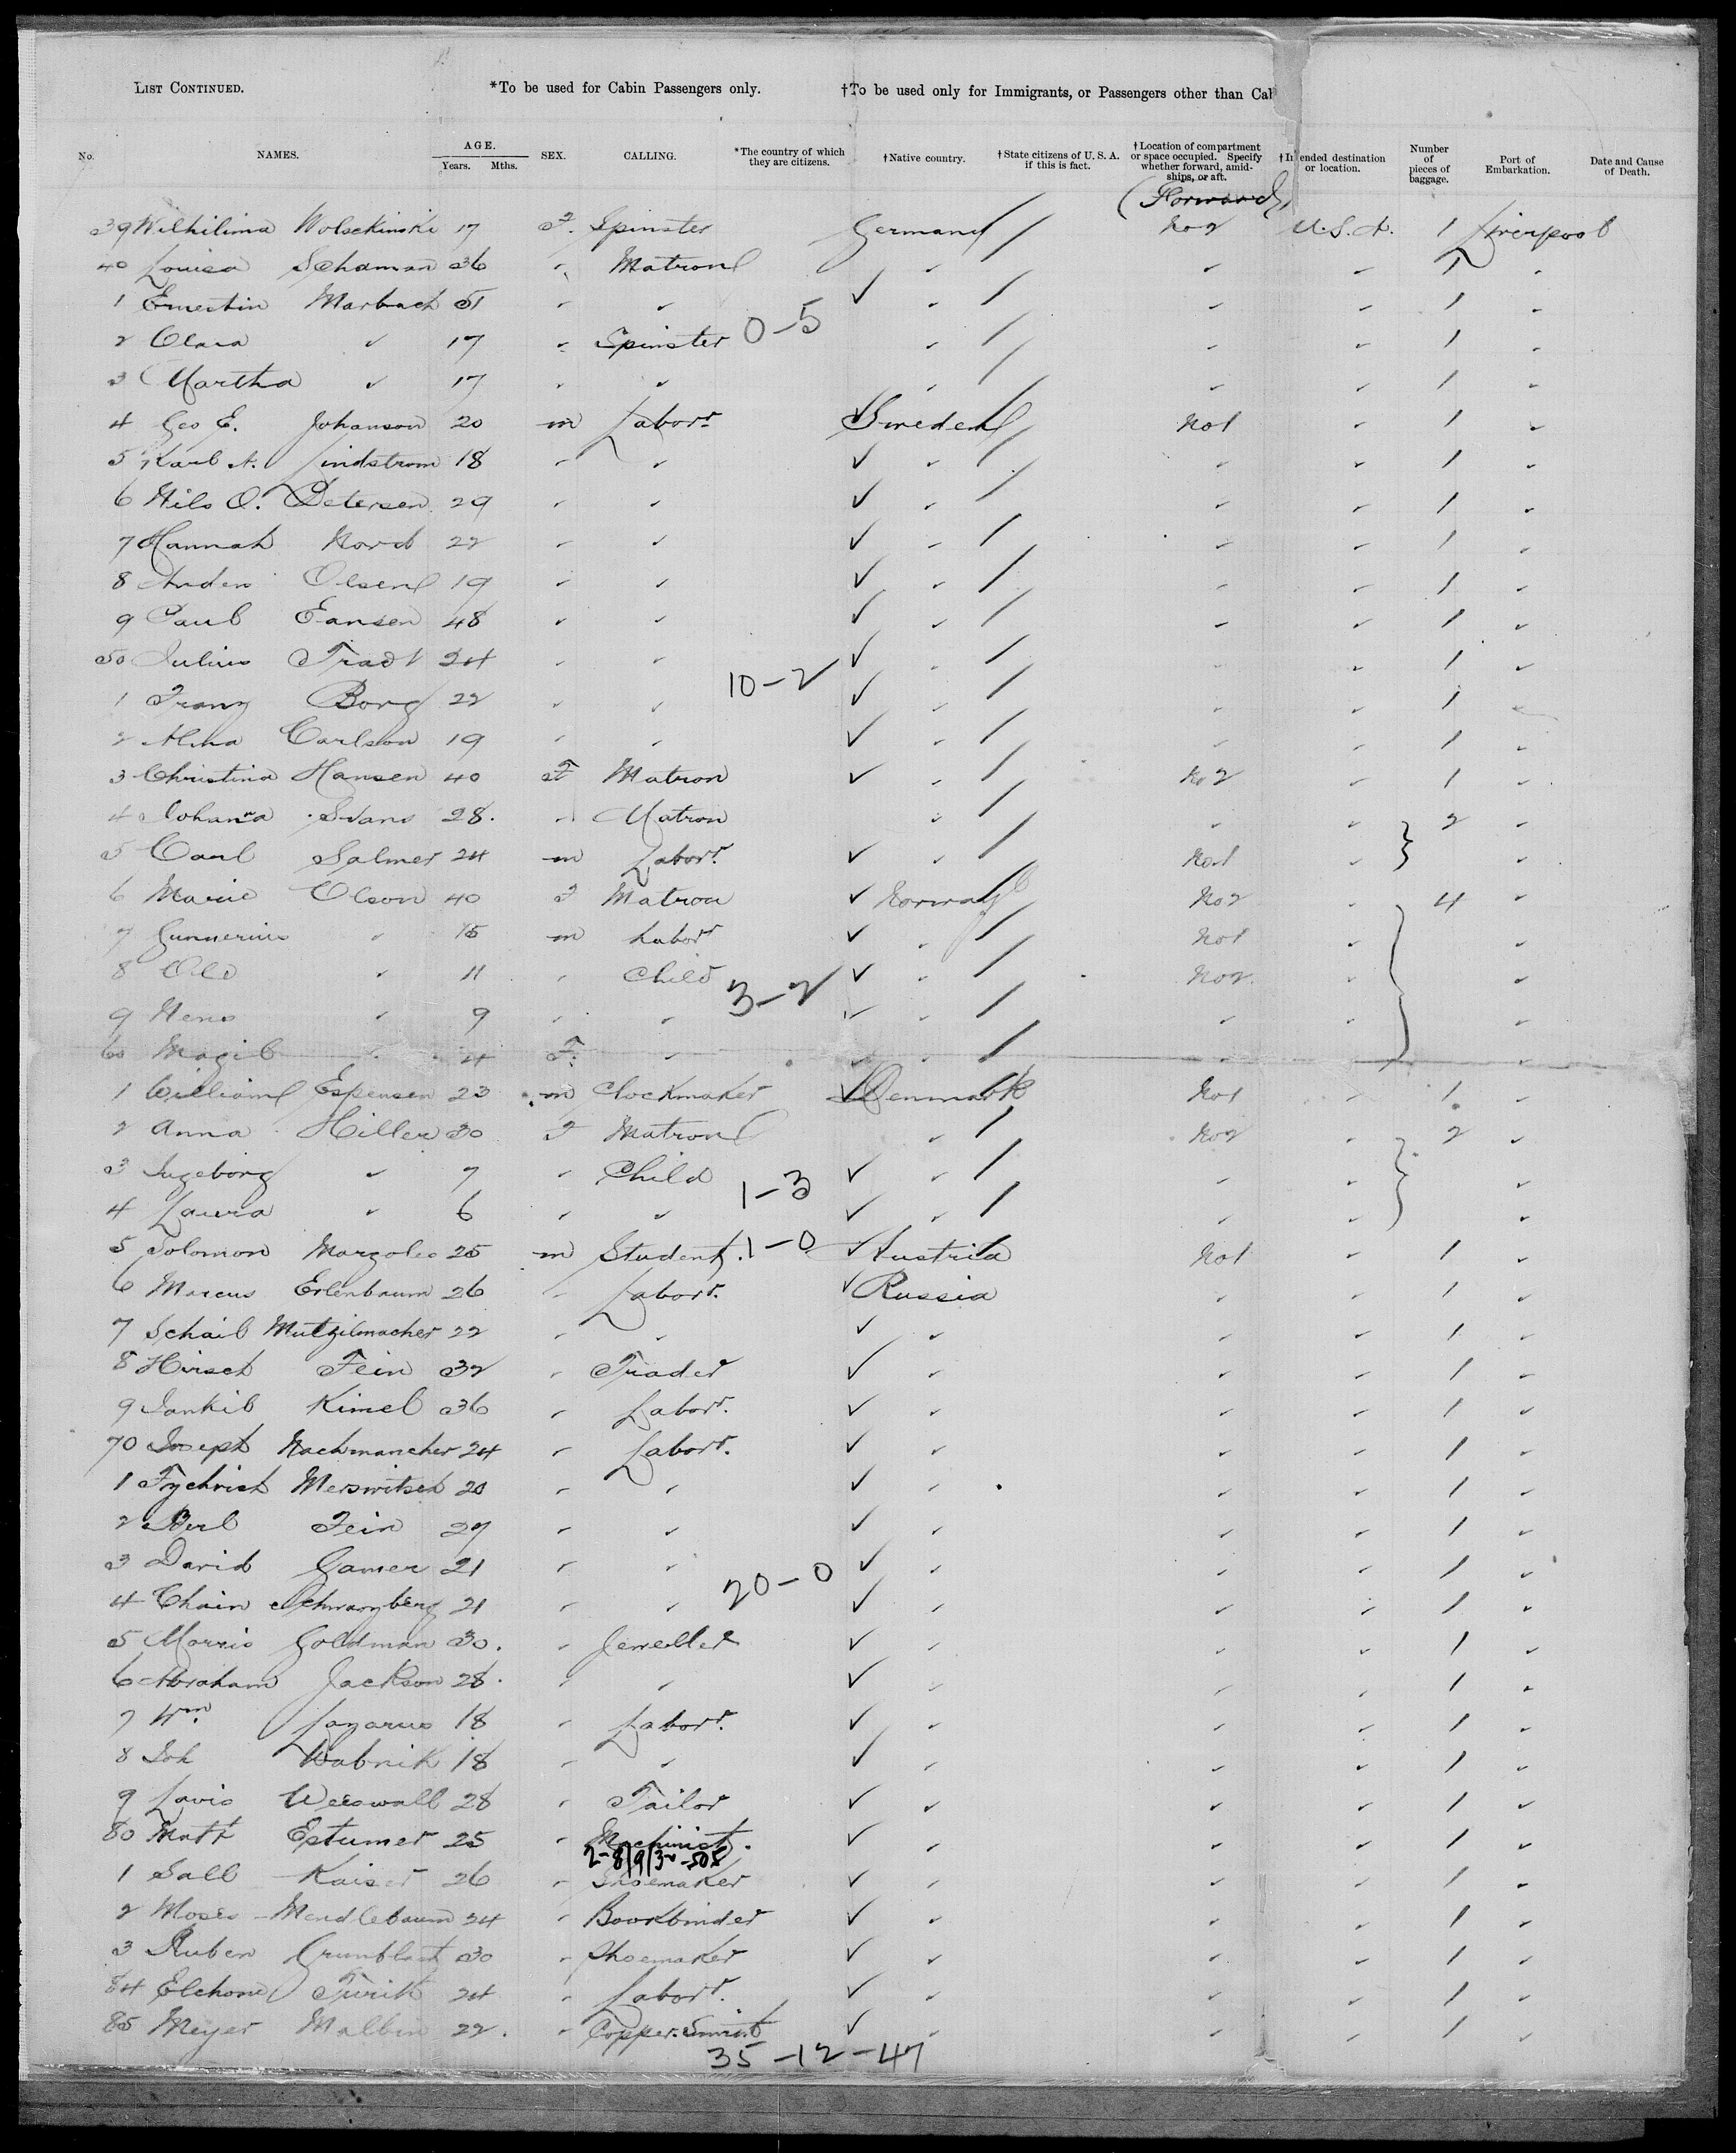 LIST CONTINUED. *To be used for Cabin Passengers only. †To be used only for Immigrants, or Passengers other than Cab
No. NAMES. AGE. Years. Mths. SEX. CALLING. *The country of which they are citizens. †Native country. †State citizens of U. S. A. if this is fact. †Location of compartment or space occupied. Specify whether forward, amidships, or aft. †Intended destination or location. Number of pieces of baggage. Port of Embarkation. Date and Cause of Death.
(Forward)
39 Wilhilima Wolsckinski 17 F. Spinster Germany No 2 U.S.A. 1 Liverpool
40 Louisa Schaman 36 " Matron " " " 1 "
1 Ernestin Marbach 51 " " " " " 1 "
0-5
2 Clara " 17 " Spinster " " " 1 "
3 Martha " 17 " " " " " 1 "
4 Geo E. Johanson 20 m Labor. Sweden No 1 " 1 "
5 Karl A. Lindstrom 18 " " " " " 1 "
6 Nils O. Petersen 29 " " " " " 1 "
7 Hannah Nord 22 " " " " " 1 "
8 Anders Olsen 19 " " " " " 1 "
9 Paul Eansen 48 " " " " " 1 "
50 Julius Tradt 24 " " " " " 1 "
10-2
1 Franz Borg 22 " " " " " 1 "
2 Alma Carlson 19 " " " " " 1 "
3 Christina Hansen 40 F Matron " No 2 " 1 "
4 Johanna Svans 28. " Matron " " " 2 "
5 Carl Salmer 24 m Labor. " No 1 " "
6 Marie Olson 40 F Matron Norway No 2 " 4 "
7 Gunnerius " 15 m Labor " No 1 " "
8 Ole " 11 " Child " No 2 " "
3-2
9 Nens " 9 " " " " " "
60 Magil " 4 F. " " " " "
1 William Espensen 23 m Clockmaker Denmark No 1 " 1 "
2 Anna Hiller 30 F Matron " No 2 " 2 "
3 Ingeborg " 7 " Child " " " "
1-3
4 Laura " 6 " " " " " "
5 Solomon Margoles 25 m Student. 1-0 Austria No 1 " 1 "
6 Marcus Erlenbaum 26 " Labor. Russia " " 1 "
7 Schail Mutzilmacher 22 " " " " " 1 "
8 Hirsch Fein 32 " Trader " " " 1 "
9 Jankil Kimel 36 " Labor. " " " 1 "
70 Joseph Nachmancher 24 " Labor. " " " 1 "
1 Merswitsch 20 " " " " " 1 "
2 Berl Fein 27 " " " " " 1 "
3 David Gamer 21 " " " " " 1 "
20-0
4 Chain Schwarzberg 21 " " " " " 1 "
5 Morris Goldman 30. " Jeweller " " " 1 "
6 Abraham Jackson 28. " " " " " 1 "
7 Wm. Lazarus 18 " Labor. " " " 1 "
8 Joh Wabnik 18 " " " " " 1 "
9 Lavis Weiswall 28 " Tailor " " " 1 "
80 Matt Estumer 25 " Machinist. " " " 1 "
1 Sall Kaiser 26 " Shoemaker " " " 1 "
2 Moses Mendlebaum 24 " Bookbinder " " " 1 "
3 Ruben Grunblast 30 " Shoemaker " " " 1 "
84 Elchone Turik 24 " Labor. " " " 1 "
85 Meyer Malbin 22. " Copper Smith " " " 1 "
35-12-47